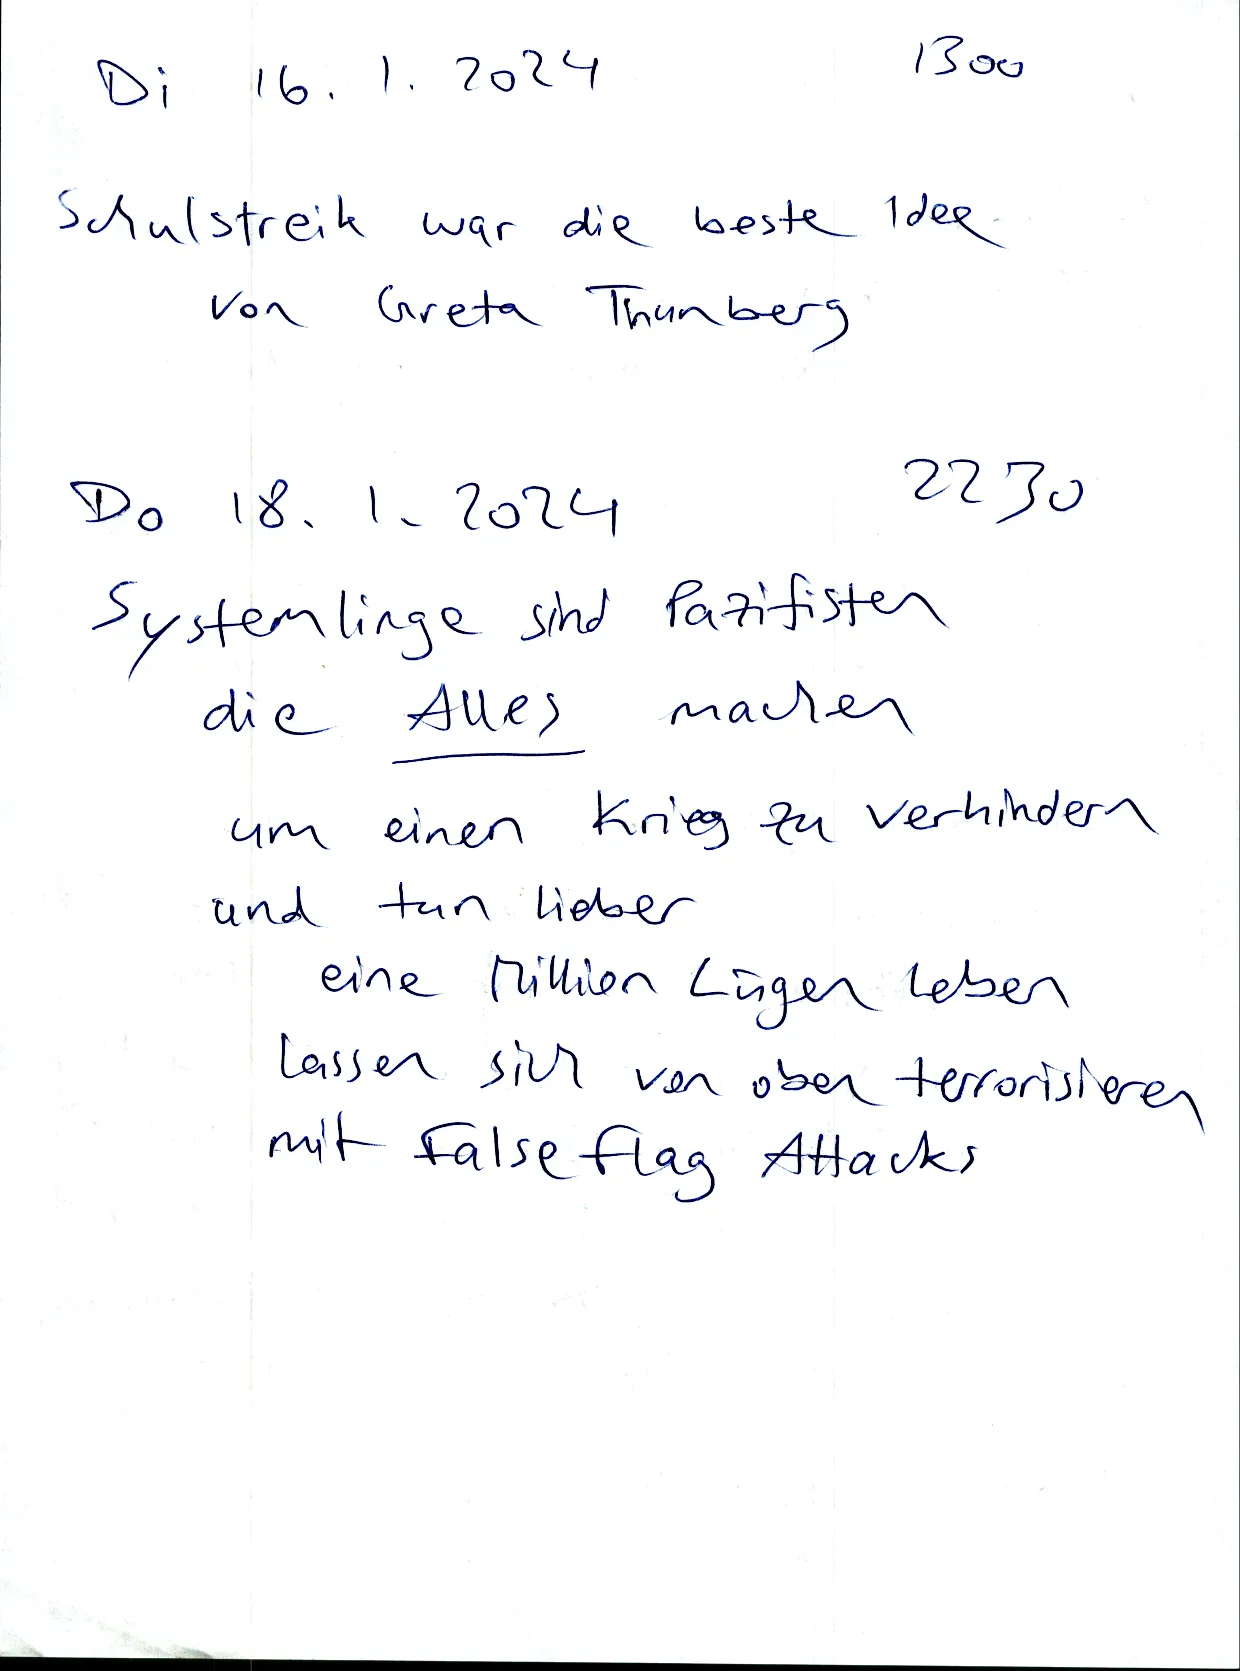 Di 16. 1. 2024 1300
Schulstreik war die beste Idee
von Greta Thunberg
Do 18. 1. 2024 2230
Systemlinge sind Pazifisten
die Alles machen
um einen Krieg zu verhindern
und tun lieber
eine Million Lügen leben
lassen sich von oben terrorisieren
mit False Flag Attacks